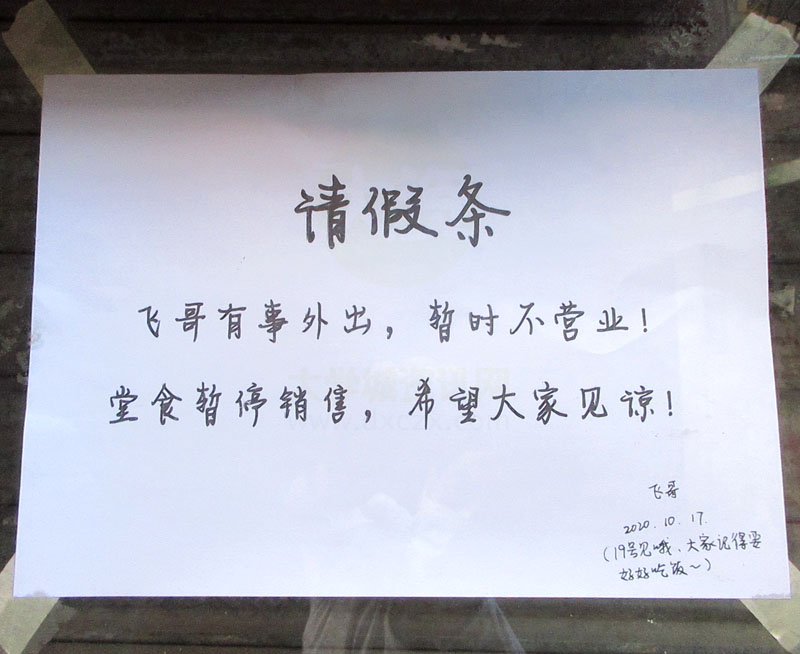 请假条
飞哥有事外出，暂时不营业！
堂食暂停销售，希望大家见谅！
飞哥
2020.10.17.
（19号见哦、大家记得要
好好吃饭～）